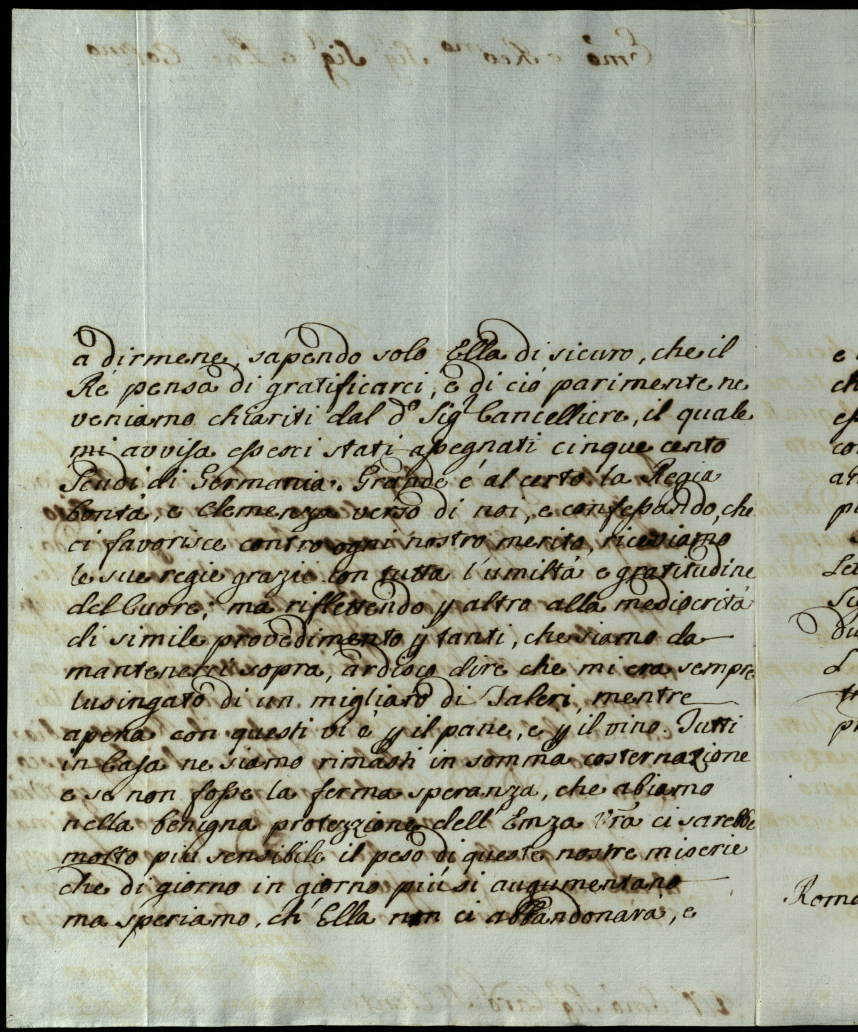 a dirmene, sapendo solo Ella di sicuro, che il
Rè pensa di gratificarci, e di ciò parimente ne
veniamo chiariti dal d.º Sig.r Cancelliere, il quale
mi avvisa esserci stati apegnati cinque cento
Scudi di Germania. Grande è al certo la Regia
bontà, e clemenza verso di noi, e confessando, che
ci favorisce contro ogni nostro merito, riceviamo
le sue regie grazie con tutta l'umiltà e gratitudine
del Cuore; ma riflettendo p altro alla mediocrità
di simile provedimento p tanti, che siamo da
mantenerci sopra, ardisco dire che mi era sempre
lusingato di un migliaro di Taleri, mentre
apena con questi vi è p il pane, e p il vino. Tutti
in Casa ne siamo rimasti in somma costernazione
e se non fosse la ferma speranza, che abiamo
nella benigna protezzione dell'Emza Vra ci sarebbe
molto più sensibile il peso di queste nostre miserie
che di giorno in giorno più si augumentano
ma speriamo, ch'Ella non ci abbandonarà, e
Roma